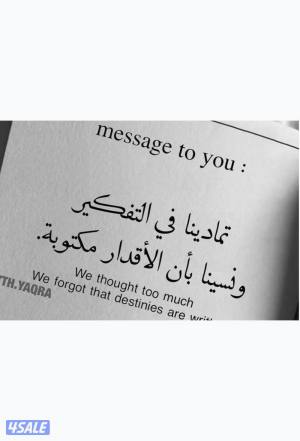 message to you :
تمادينا في التفكير
ونسينا بأن الأقدار مكتوبة.
We thought too much
We forgot that destinies are
TH.YAQRA
4SALE